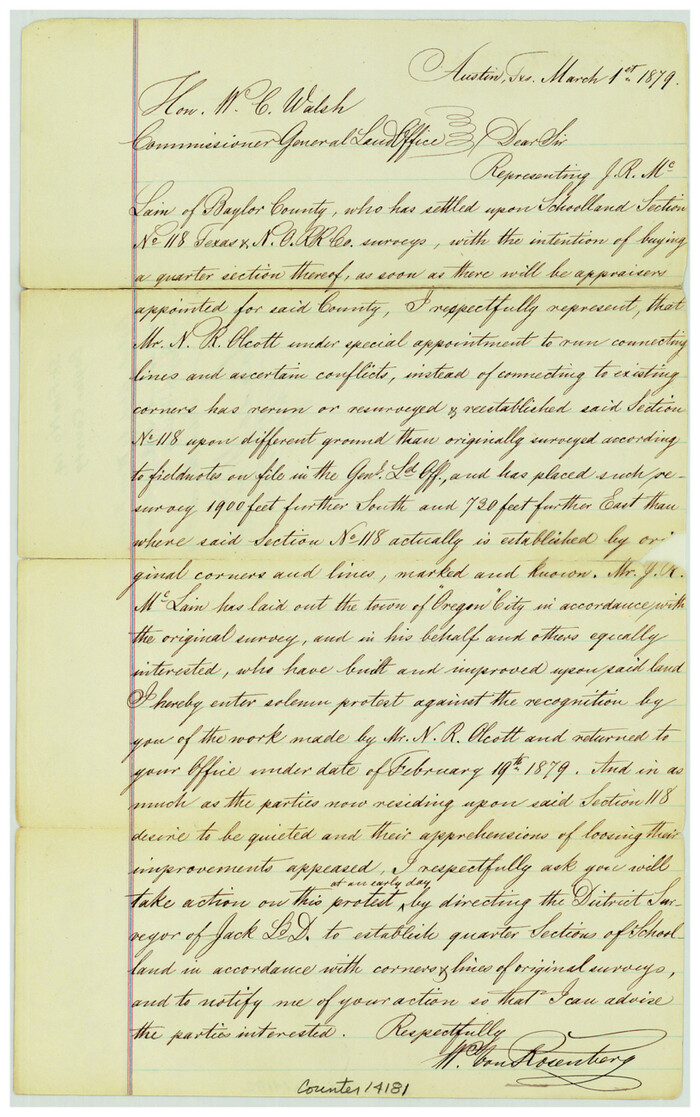 Austin, Tex. March 1st 1879.
Hon. W. C. Walsh
Commissioner General Land Office } Dear Sir
Representing J. R. Mc
Lain of Baylor County, who has settled upon Schoolland Section
No 118 Texas & N. O. RR Co. surveys, with the intention of buying
a quarter section thereof, as soon as there will be appraisers
appointed for said County, I respectfully represent, that
Mr. N. R. Olcott under special appointment to run connecting
lines and ascertain conflicts, instead of connecting to existing
corners has rerun or resurveyed & reestablished said Section
No 118 upon different ground than originally surveyed according
to fieldnotes on file in the Genl. Ld Off., and has placed such re-
survey 1900 feet further South and 720 feet further East than
where said Section No 118 actually is established by ori
ginal corners and lines, marked and known. Mr. J. R.
McLain has laid out the town of "Oregon" City in accordance with
the original survey, and in his behalf and others equally
interested, who have built and improved upon said land
I hereby enter solemn protest against the recognition by
you of the work made by Mr. N. R. Olcott and returned to
your Office under date of February 19th 1879. And in as
much as the parties now residing upon said Section 118
desire to be quieted and their apprehensions of loosing their
improvements appeased, I respectfully ask you will
at an early day
take action on this protest ^ by directing the District Sur
veyor of Jack L. D. to establish quarter Sections of School-
land in accordance with corners & lines of original surveys,
and to notify me of your action so that I can advise
the parties interested. Respectfully
W. von Rosenberg
Counter 14181